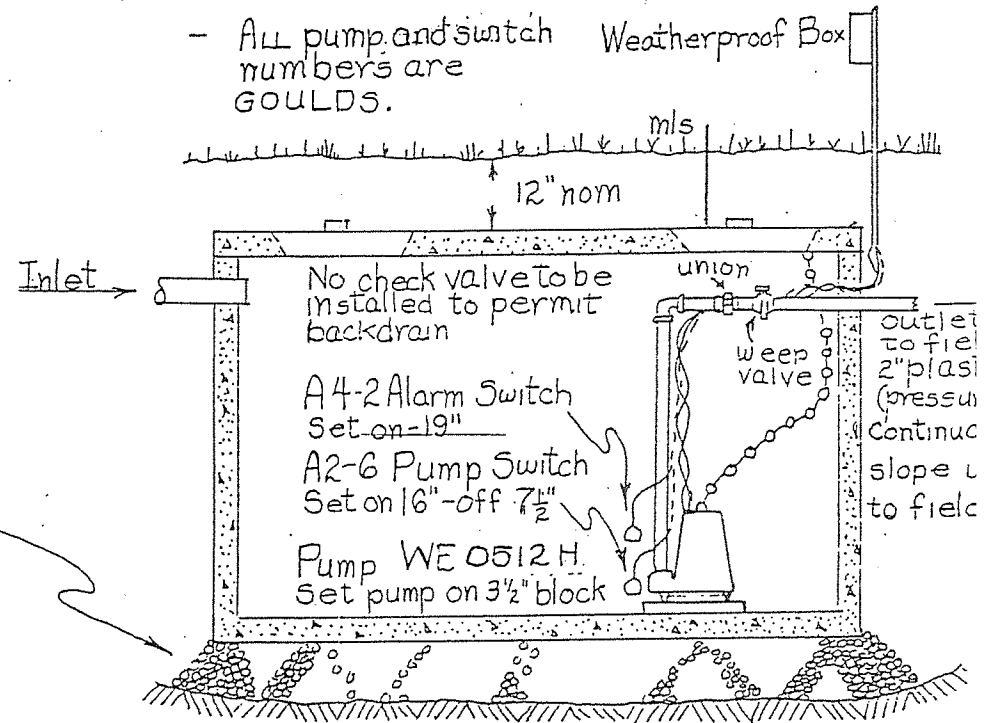 - ALL pump and switch
numbers are
GOULDS.
Weatherproof Box
mls
12" nom
Inlet
No check valve to be
installed to permit
backdrain
union
weep
valve
outlet
to fiel
2" plast
(pressu
continuo
slope u
to field
A4-2 Alarm Switch
Set on-19"
A2-6 Pump Switch
Set on 16"-off 7½"
Pump WE 0512 H.
Set pump on 3½" block